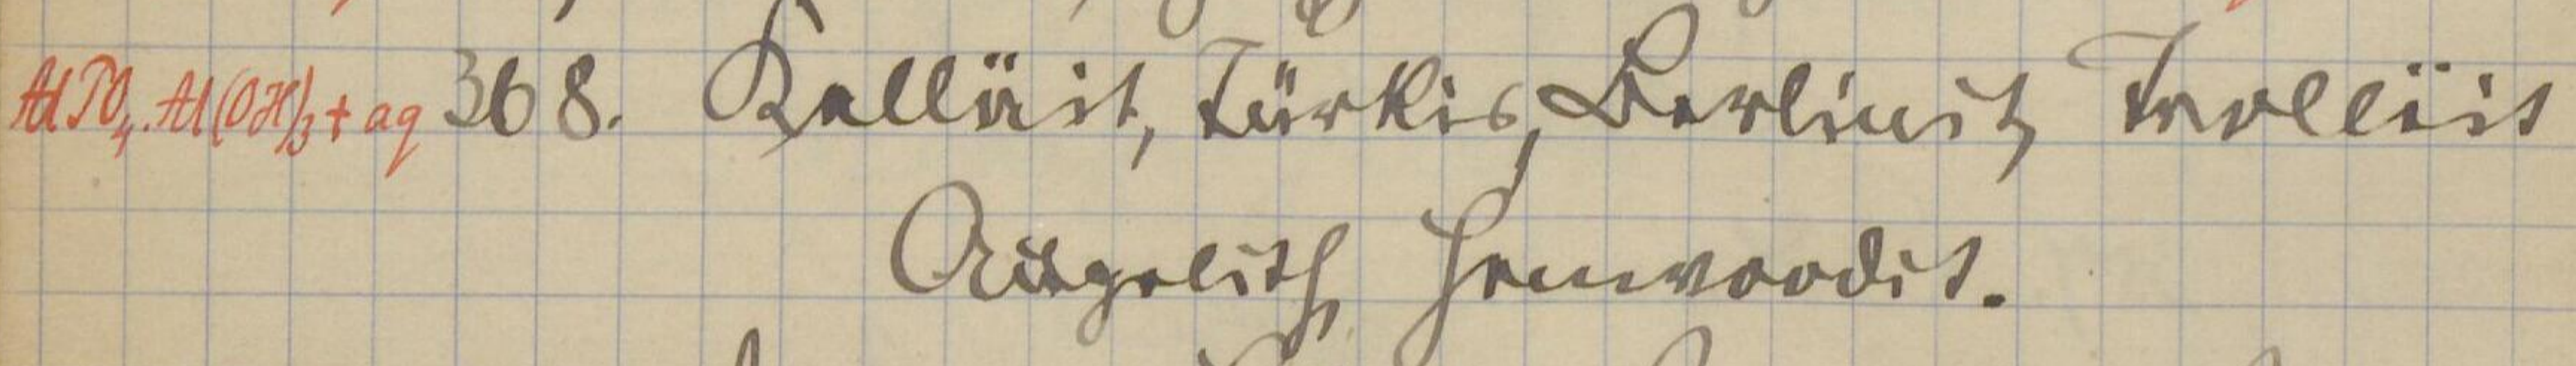 AlPO₄. Al(OH)₃ + aq 368. Kallait, Türkis, Berlinit, Trolleit
Augelith, Henwoodit.